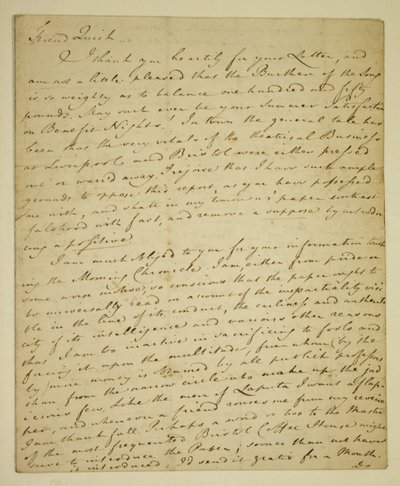 Friend Quick
I thank you heartily for your Letter, and
am not a little pleased that the Burthen of the Song
is so weighty as to balance one hundred and fifty
pounds. May such ever be your Summer Satisfaction
on Benefit Nights! In town the general talk has
been that the very vitals of the theatrical Business
at Liverpool and Bristol were either pressed
out or warr'd away. I rejoice that I have such ample
grounds to oppose this report, as you have possessed
me with, and shall in my tomorrow's paper contrast
falsehood with fact, and remove a suppose by introdu
cing a positive.
I am much obliged to you for your information touch
ing the Morning Chronicle. I am either from pride or
some worse motive, so conscious that the paper ought to
be universally read on account of the impartiality visi
ble in the line of its conduct, the earliness and authenti
city of its intelligence and various other reasons
that I am too inactive in sacrificing to fools and
forcing it upon the multitude, from whom (by the
by) more money is gained by all publick professions
than from the narrow circle who make up the jud
icious few. Like the men of Laputa I want a flap
per, and whenever a friend rouses me from my reverie
I am thankfull. Perhaps, a word or two to the Master
of the most frequented Bristol Coffee House might
serve to introduce the Paper; sooner than not have
it introduced, I'd send it gratis for a Month.
Do